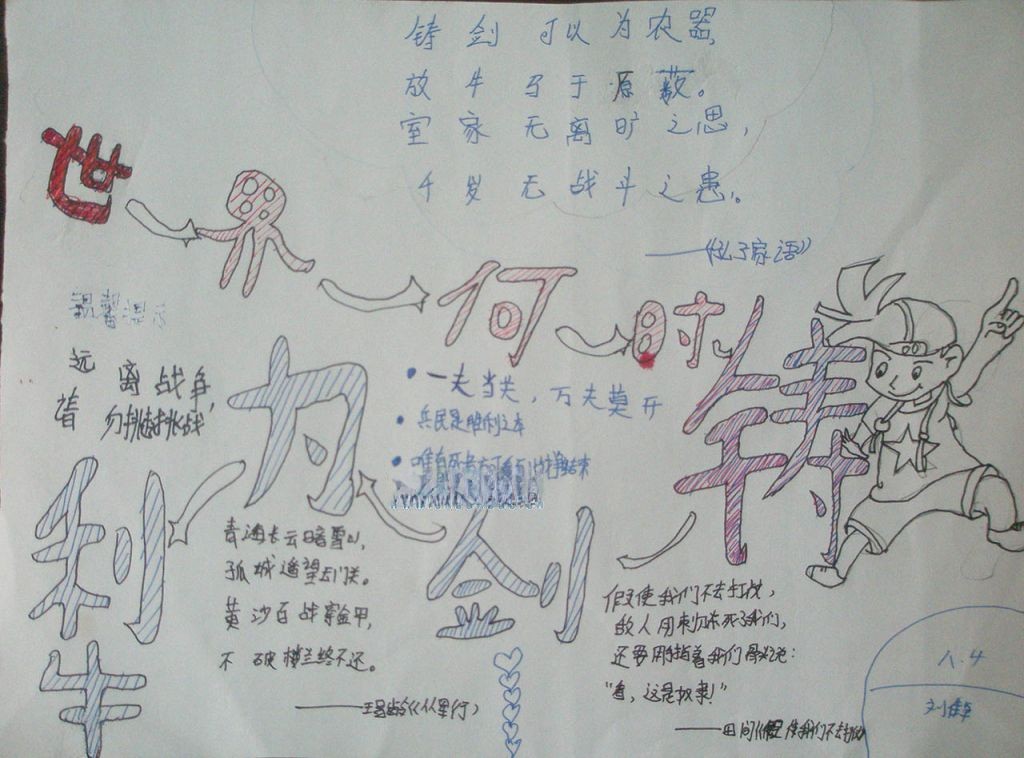 铸剑可以为农器
放牛马于源薮。
室家无离旷之思，
千岁无战斗之患。
——《孔子家语》
世界何时铸剑为利牛
温馨提示
远离战争，
请勿挑战
• 一夫当关，万夫莫开
• 兵民是胜利之本
青海长云暗雪山，
孤城遥望玉门关。
黄沙百战穿金甲，
不破楼兰终不还。
——王昌龄《从军行》
假使我们不去打战，
敌人用刺刀杀死了我们，
还要用手指着我们骨头说：
“看，这是奴隶！”
——田间《假使我们不去打战》
八.4